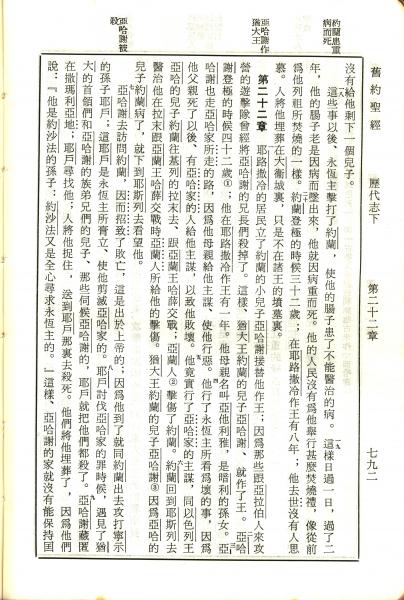 舊約聖經　歷代志下　第二十二章　七九二
約蘭患重
病而死
亞哈謝作
猶大王
亞哈謝被
殺
沒有給他剩下一個兒子。
這些事以後、永恆主擊打了約蘭,使他的腸子患了不能醫治的病。這樣日過一日,過了二
年,他的腸子老是因病而墜出來,他就因病重而死。他的人民沒有爲他舉行甚麼焚燒禮,像從前
爲他列祖所焚燒的一樣。約蘭登極的時候三十二歲;在耶路撒冷作王有八年;他去世沒有人思
慕。人將他埋葬在大衛城裏,只是不在諸王的墳墓裏。
第二十二章　耶路撒冷的居民立了約蘭的小兒子亞哈謝接替他作王;因爲那些跟亞拉伯人來攻
營的遊擊隊曾經將亞哈謝的兄長們殺掉了。這樣、猶大王約蘭的兒子亞哈謝、就作了王。亞哈
謝登極的時候四十二歲①;他在耶路撒冷作王有一年。他母親名叫亞他利雅,是暗利的孫女。亞
哈謝也走亞哈家所走的路,因爲他母親給他主謀、使他行惡。他行了永恆主所看爲壞的事,因爲
他父親死了以後、有亞哈家的人給他主謀,以致他敗壞。他竟實行了亞哈家的主謀,同以色列王
亞哈的兒子約蘭往基列的拉末去、跟亞蘭王哈薛交戰;亞蘭人②擊傷了約蘭。約蘭回到耶斯列去
醫治他在拉末跟亞蘭王哈薛交戰時亞蘭人所給他的擊傷。猶大王約蘭的兒子亞哈謝③因爲亞哈的
兒子約蘭病了,就下到耶斯列去看望他。
亞哈謝去訪問約蘭,因而招致了敗亡,這是出於上帝的;因爲他到了就同約蘭出去攻打寧示
的孫子耶戶;這耶戶是永恆主所膏立、使他剪滅亞哈家的。耶戶討伐亞哈家的罪時候,遇見了猶
大的首領們和亞哈謝的族弟兄們的兒子、那些伺候亞哈謝的,耶戶就把他們都殺了。亞哈謝藏匿
在撒瑪利亞地;耶戶尋找他;人將他捉住,送到耶戶那裏去殺死。他們將他埋葬了,因爲他們
說:『他是約沙法的孫子;約沙法又是全心尋求永恆主的。』這樣、亞哈謝的家就沒有能保持國